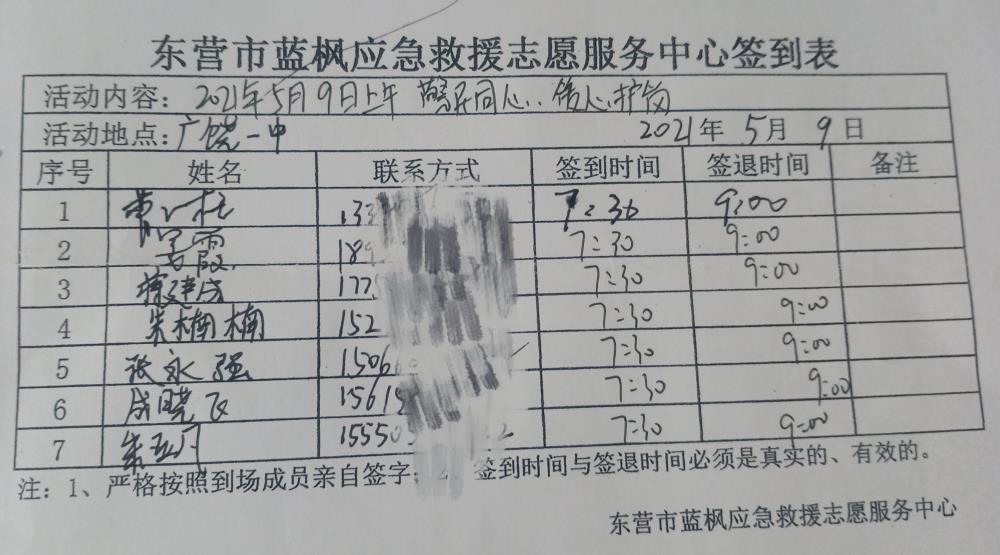 东营市蓝枫应急救援志愿服务中心签到表
活动内容：2021年5月9日上午 警民同心、倩心护岗
活动地点：广饶一中 2021年5月9日
序号 姓名 联系方式 签到时间 签退时间 备注
1 133 7:30 9:00
2 189 7:30 9:00
3 177 7:30 9:00
4 朱楠楠 152 7:30 9:00
5 张永强 1506 7:30 9:00
6 成晓飞 1561 7:30 9:00
7 15550 2 7:30 9:00
注：1、严格按照到场成员亲自签字；2 签到时间与签退时间必须是真实的、有效的。
东营市蓝枫应急救援志愿服务中心